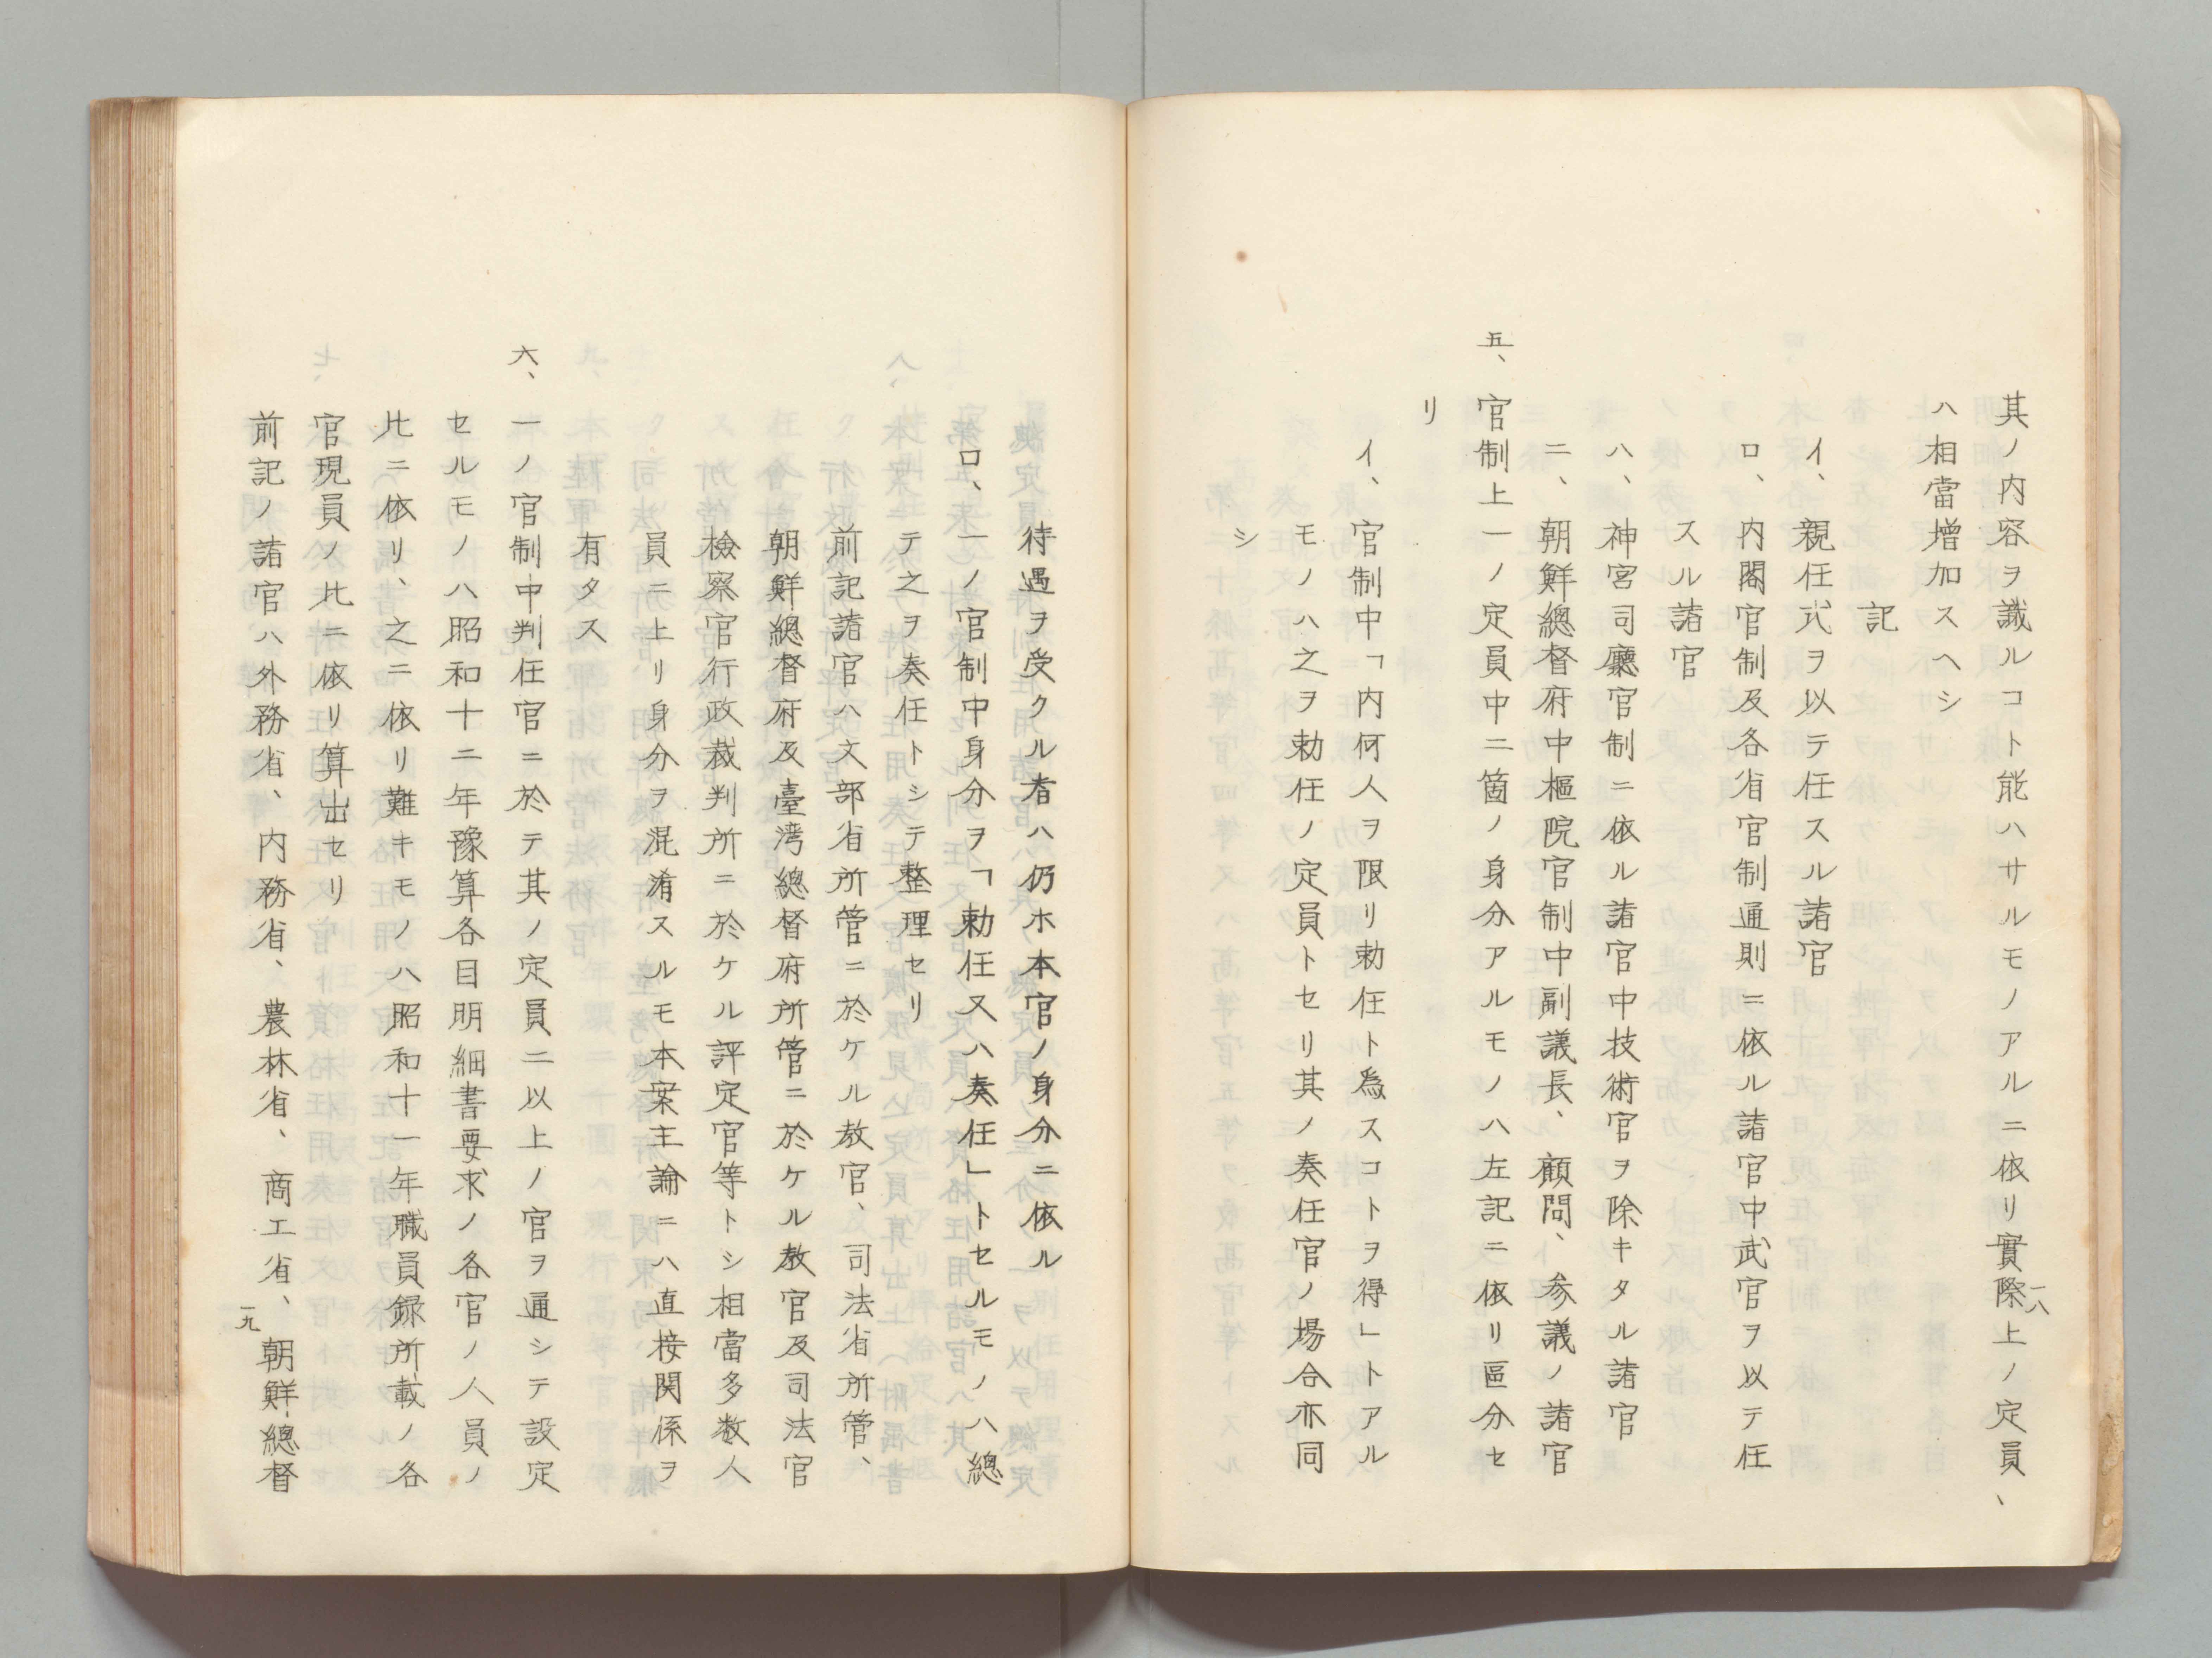 其ノ内容ヲ識ルコト能ハサルモノアルニ依リ實際上ノ定員、
ハ相當增加スヘシ
記
イ、親任式ヲ以テ任スル諸官
ロ、內閣官制及各省官制通則ニ依ル諸官中武官ヲ以テ任
スル諸官
ハ、神宮司廳官制ニ依ル諸官中技術官ヲ除キタル諸官
ニ、朝鮮總督府中樞院官制中副議長、顧問、参議ノ諸官
五、官制上一ノ定員中二箇ノ身分アルモノハ左記ニ依リ區分セ
リ
イ、官制中「内何人ヲ限リ勅任ト爲スコトヲ得」トアル
モノハ之ヲ勅任ノ定員トセリ其ノ奏任官ノ場合亦同
シ
一八
待遇ヲ受クル者ハ仍ホ本官ノ身分ニ依ル
ロ、一ノ官制中身分ヲ「勅任又ハ奏任」トセルモノハ總
テ之ヲ奏任トシテ整理セリ
前記諸官ハ文部省所管ニ於ケル教官、司法省所管、
朝鮮總督府及臺湾總督府所管ニ於ケル教官及司法官
檢察官行政裁判所ニ於ケル評定官等トシ相當多数人
員ニ上リ身分ヲ混淆スルモ本案主論ニハ直接関係ヲ
有タス
六、一ノ官制中判任官ニ於テ其ノ定員ニ以上ノ官ヲ通シテ設定
セルモノハ昭和十二年豫算各目明細書要求ノ各官ノ人員ノ
比ニ依リ、之ニ依リ難キモノハ昭和十一年職員録所載ノ各
官現員ノ比ニ依リ算出セリ
前記ノ諸官ハ外務省、内務省、農林省、商工省、朝鮮總督
一九